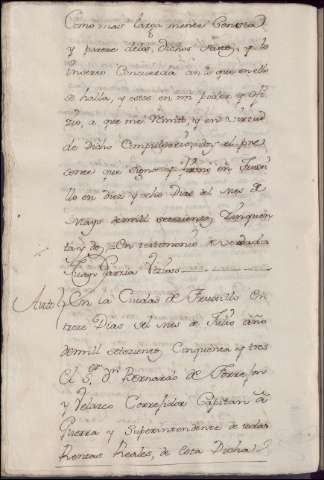 Como mas larga mente Consta
y parece de los dichos Autos y lo
inserto Concuerda con lo que en ellos
se halla, y estos en mi poder y ofi
zio, a que me Remito, y en virtud
de dicho Compulsorio doy el pre
sente que signo y firmo en Truxi
llo en diez y ocho Dias del Mes de
Mayo de mill setecientos Zinquen
ta y dos = En testimonio de verdad =
Garzia
Auto En la Ciudad de Truxillo en
trece Dias del Mes de Julio año
de mill setecientos Cinquenta y tres
El S.r D.n Bernardo de
y Velasco Correjidor Capitan a
Guerra y Superintendente de todas
Rentas Reales, de esta Dicha